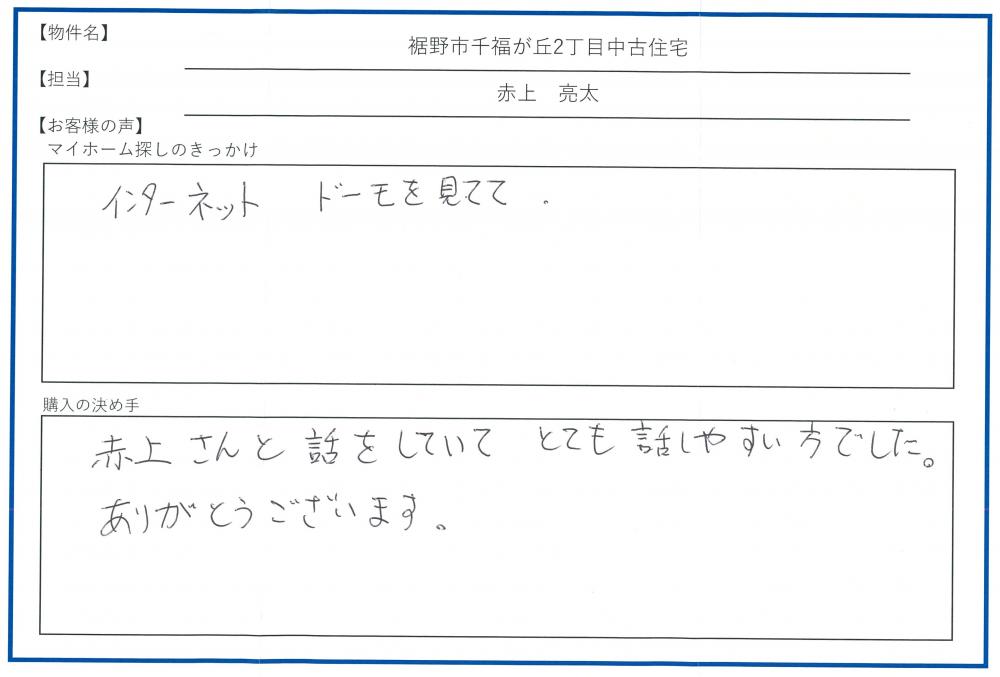 【物件名】
裾野市千福が丘2丁目中古住宅
【担当】
赤上　亮太
【お客様の声】
マイホーム探しのきっかけ
インターネット　ドーモを見てて.
購入の決め手
赤上さんと話をしていて　とても話しやすい方でした。
ありがとうございます。